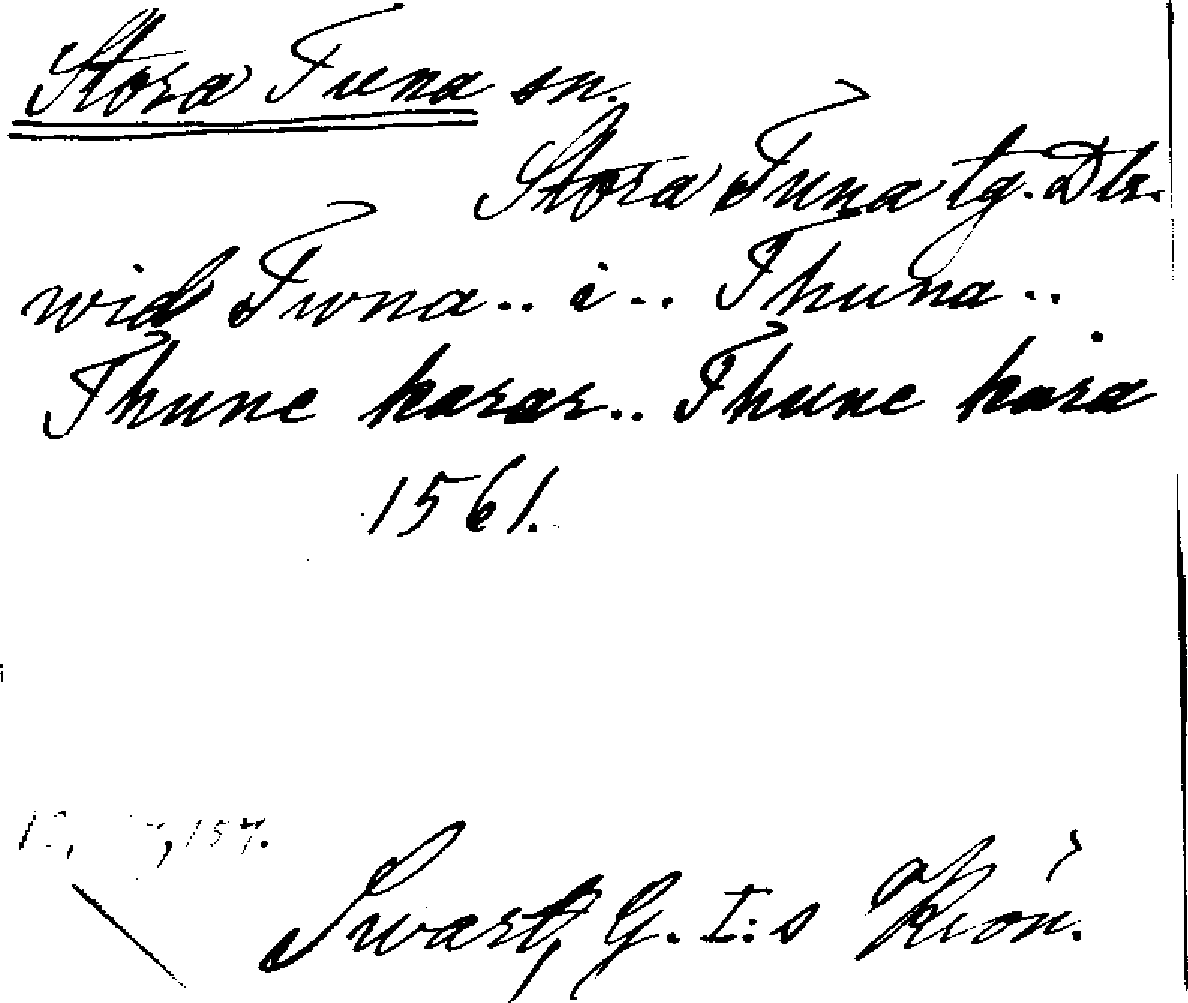 Stora Tuna sn.
Stora Tuna tg. Dlr.
wid Twna.. i.. Thuna..
Thune karar.. Thune kara
1561.
157.
Swart, G. I:s Krön.